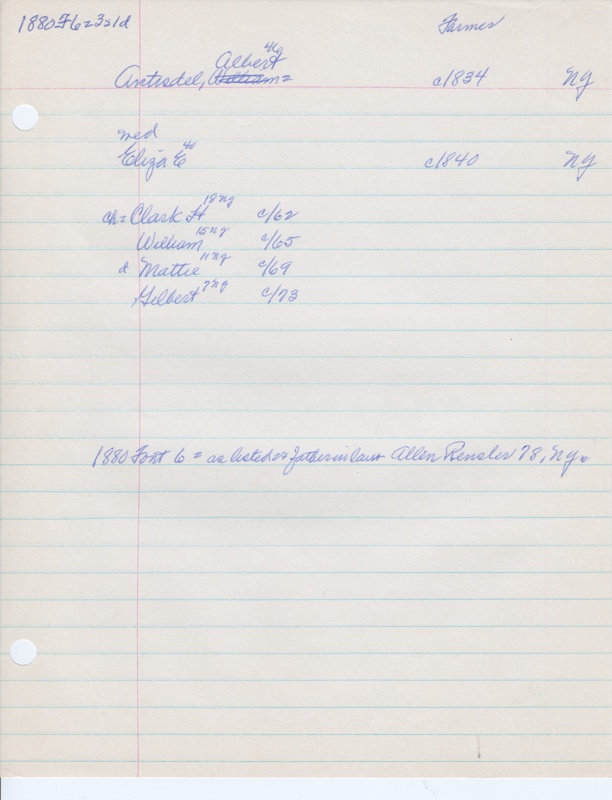 1880 F 6 = 3s1d
Farmer
46
Antisdel, Albert William = c1834 NY
md
Eliza E 40 c1840 NY
ch = Clark H 18 NY c/62
William 15 NY c/65
d Mattie 11 NY c/69
Gilbert 7 NY c/73
1880 Font 6 = as listed & father in law Allen Rensler 78, NY.